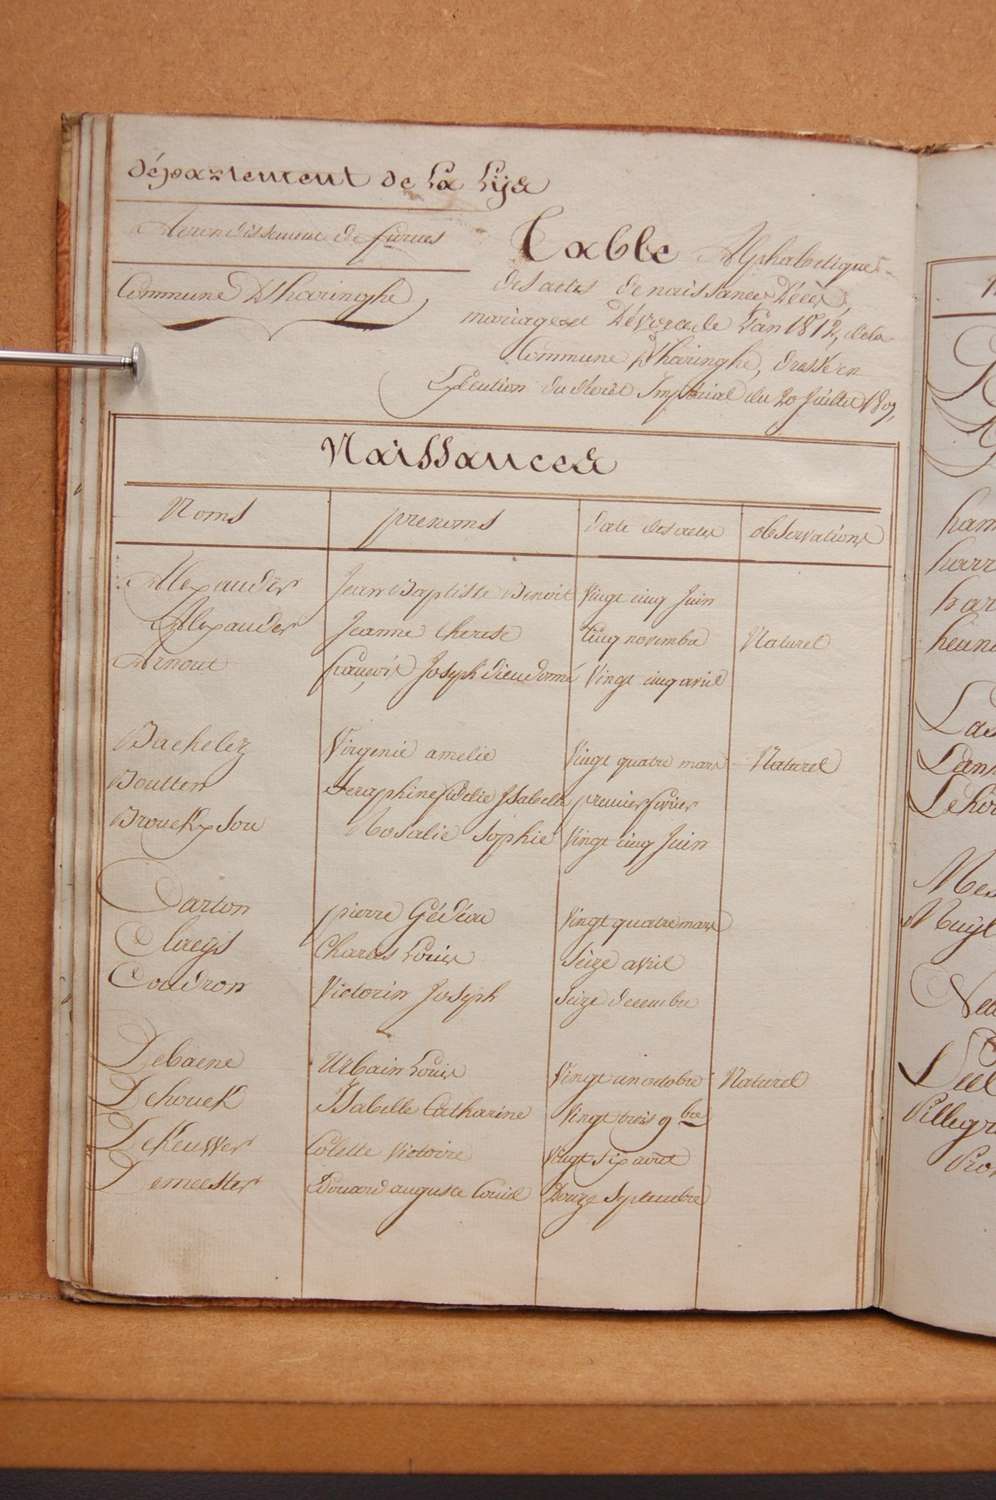 Département de La Lÿs
Arrondissement de furnes
Commune D'haringhe,
Table Alphabetique
des actes de naissances Décès,
mariages et Dévorce, de L'an 1812, de la
Commune D'haringhe, dressée en
Execution du decrêt Impérial du 20 Juillet 1807,
Naissances
Noms prenoms date des actes observations
Alexander Jean Baptiste Benoit Vingt cinq Juin
Alexander Jeanne therese Cinq novembre Naturel
Arnout françois Joseph dieudonné Vingt cinq avril
Bachelez Virgenie amelie Vingt quatre mars Naturel
Boutten Seraphine fidelie Isabelle premier fevrier
Brouckxsou Rosalie Sophie Vingt cinq Juin
Carton pierre Gédéau Vingt quatre mars
Claeys Charles Louis Seize avril
Coudron Victorin Joseph Seize decembre
Debaene Urbain Louis Vingt un octobre Naturel
Dehouck Isabelle Catharine Vingt trois 9bre
DeKeuwer Colette Victoire Vingt Six avril
Demeester Edouard auguste Louis Douze Septembre
ham
harr
har
heun
Las
Lann
Lehou
Mes
Muyl
Peel
Pillegr